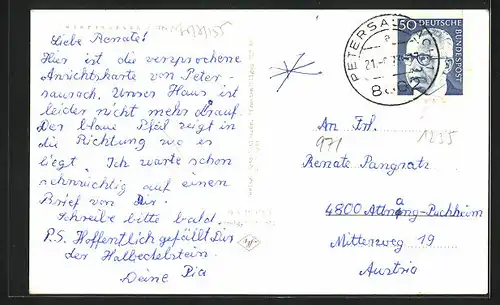 Liebe Renate!
Hier ist die versprochene
Ansichtskarte von Peter-
saurach. Unser Haus ist
leider nicht mehr drauf.
Der blaue Pfeil zeigt in
die Richtung wo es
liegt. Ich warte schon
sehnsüchtig auf einen
Brief von Dir.
Schreibe bitte bald.
P.S. Hoffentlich gefällt Dir
der Halbedelstein.
Deine Pia
PETERSAURACH
21.
50
DEUTSCHE
BUNDESPOST
An Frl.
971
1235
Renate Pangratz
4800 Attnang-Puchheim
Mitterweg 19
Austria